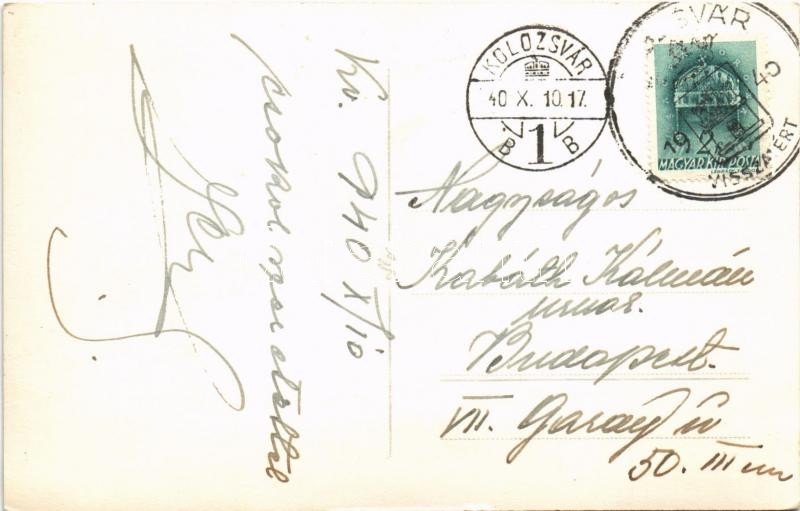 Kv. 940 X/10
csokol szeretettel
KOLOZSVÁR
40 X. 10.17.
B 1 B
SVÁR
40
VISSZATÉRT
12
MAGYAR KIR. POSTA
Nagyságos
Kabáth Kálmán
urnak.
Budapest.
VII. Garay u
50. III em